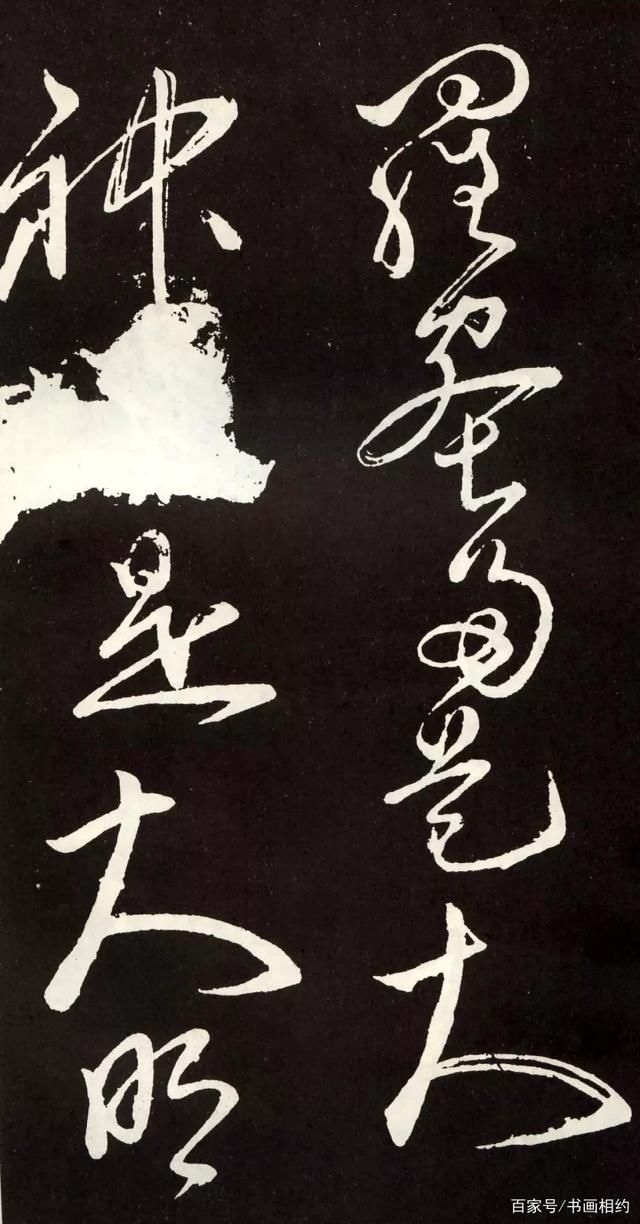 羅蜜多是大
神是大明
百家号/书画相约